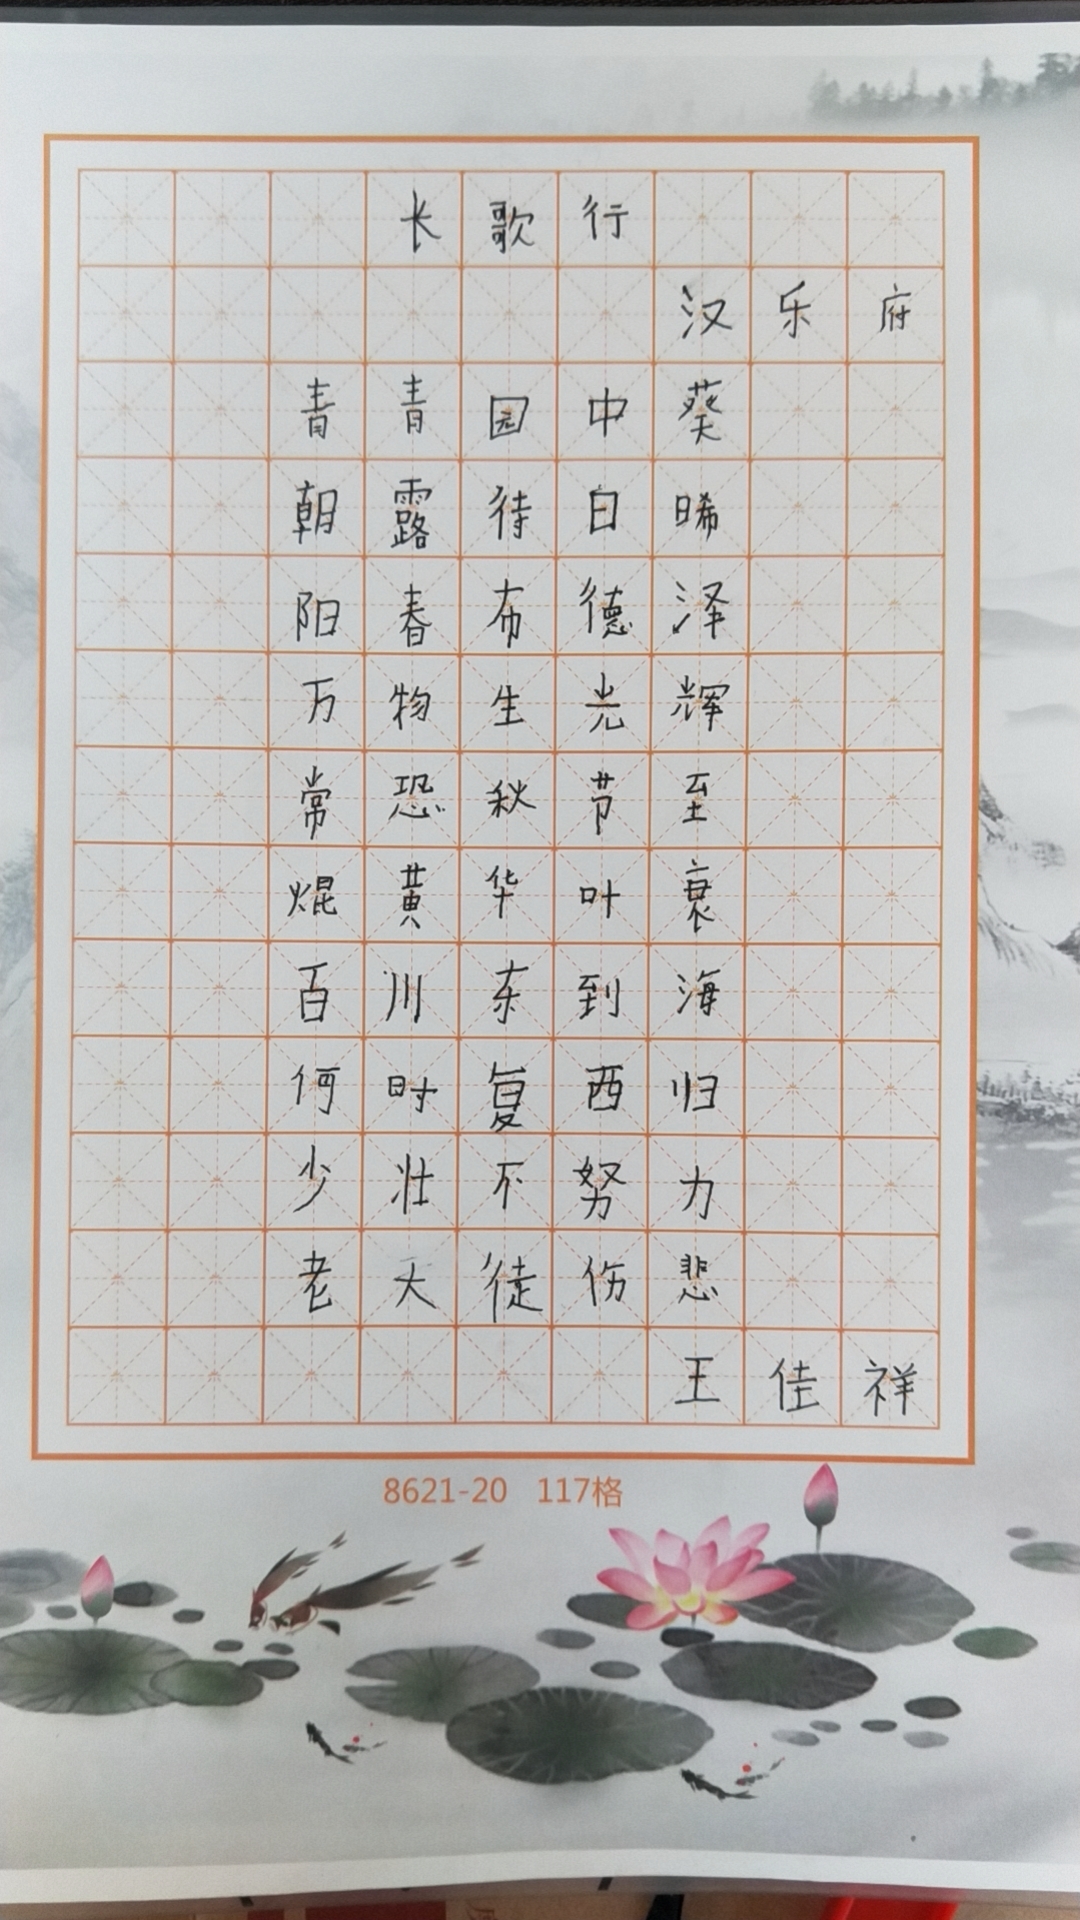 长歌行
汉乐府
青青园中葵
朝露待日晞
阳春布德泽
万物生光辉
常恐秋节至
焜黄华叶衰
百川东到海
何时复西归
少壮不努力
老大徒伤悲
王佳祥
8621-20 117格